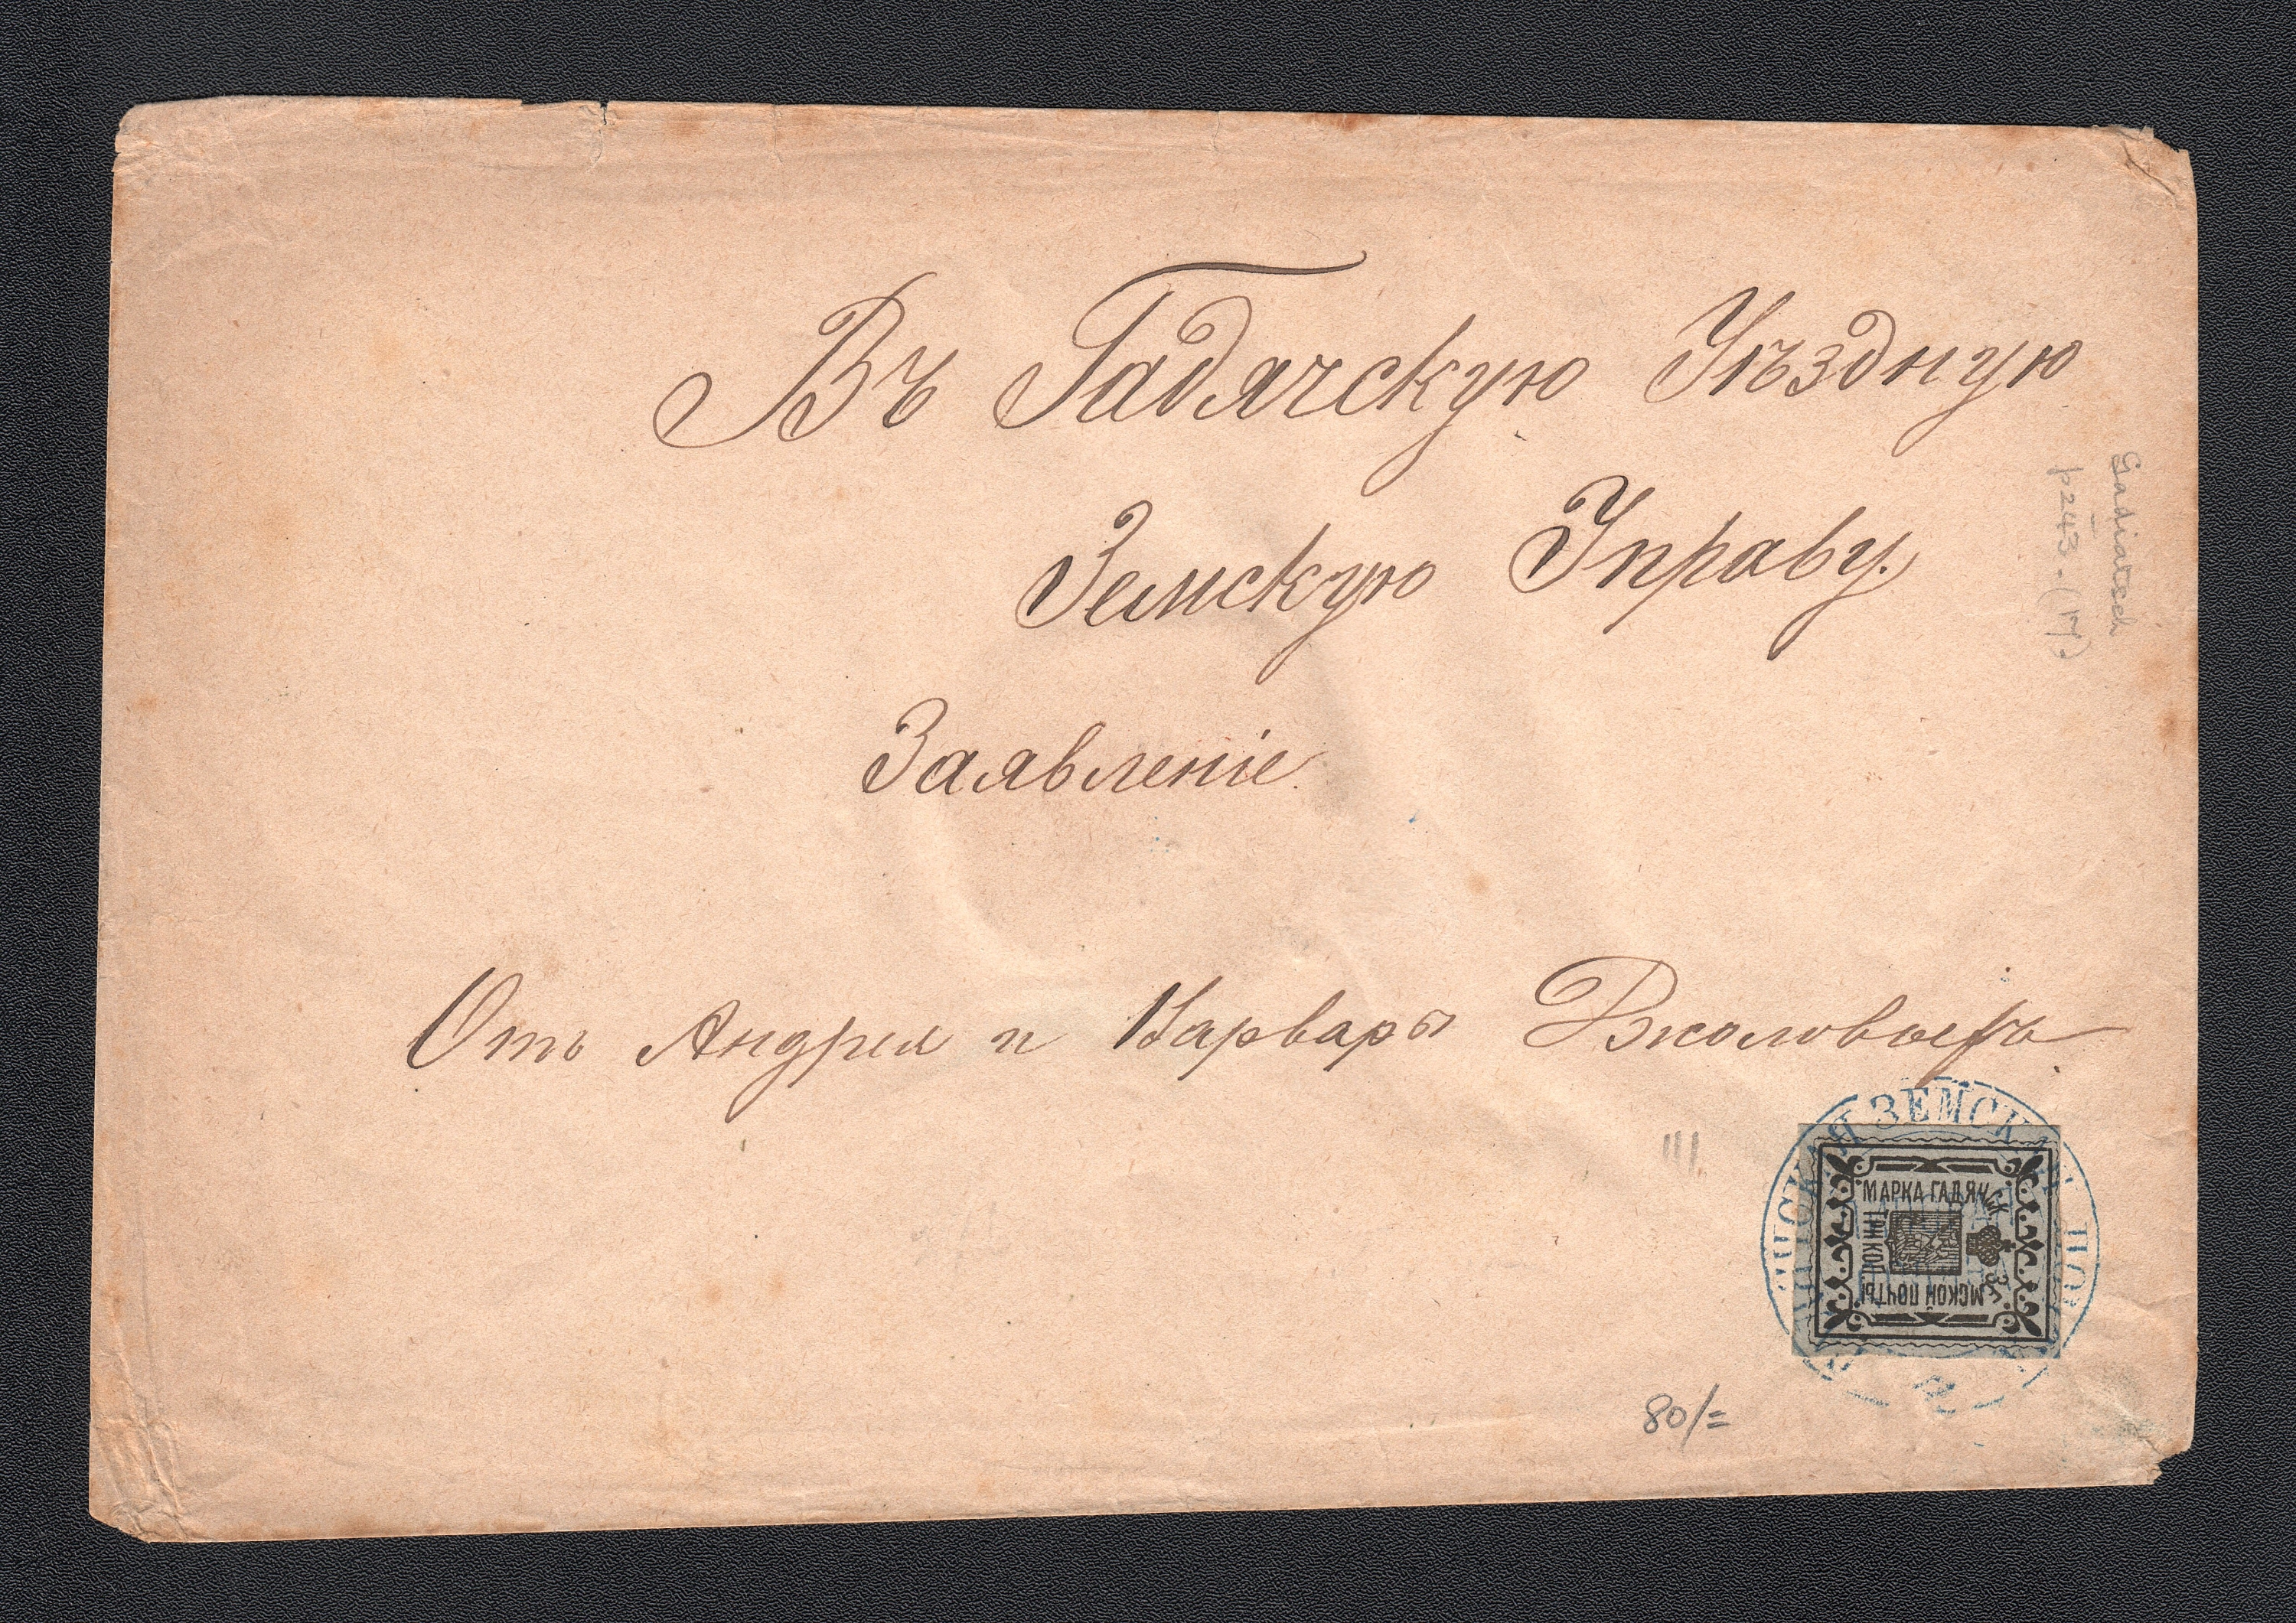 Въ Гадячскую Уѣздную
Земскую Управу.
Заявленіе.
Отъ Андрея и Варвары
Gadiatsch
p243.(17).
МАРКА ГАДЯЧСК ЗЕМСКОЙ ПОЧТЫ
ТРИ КОП
ЗЕМСКАЯ
80/=